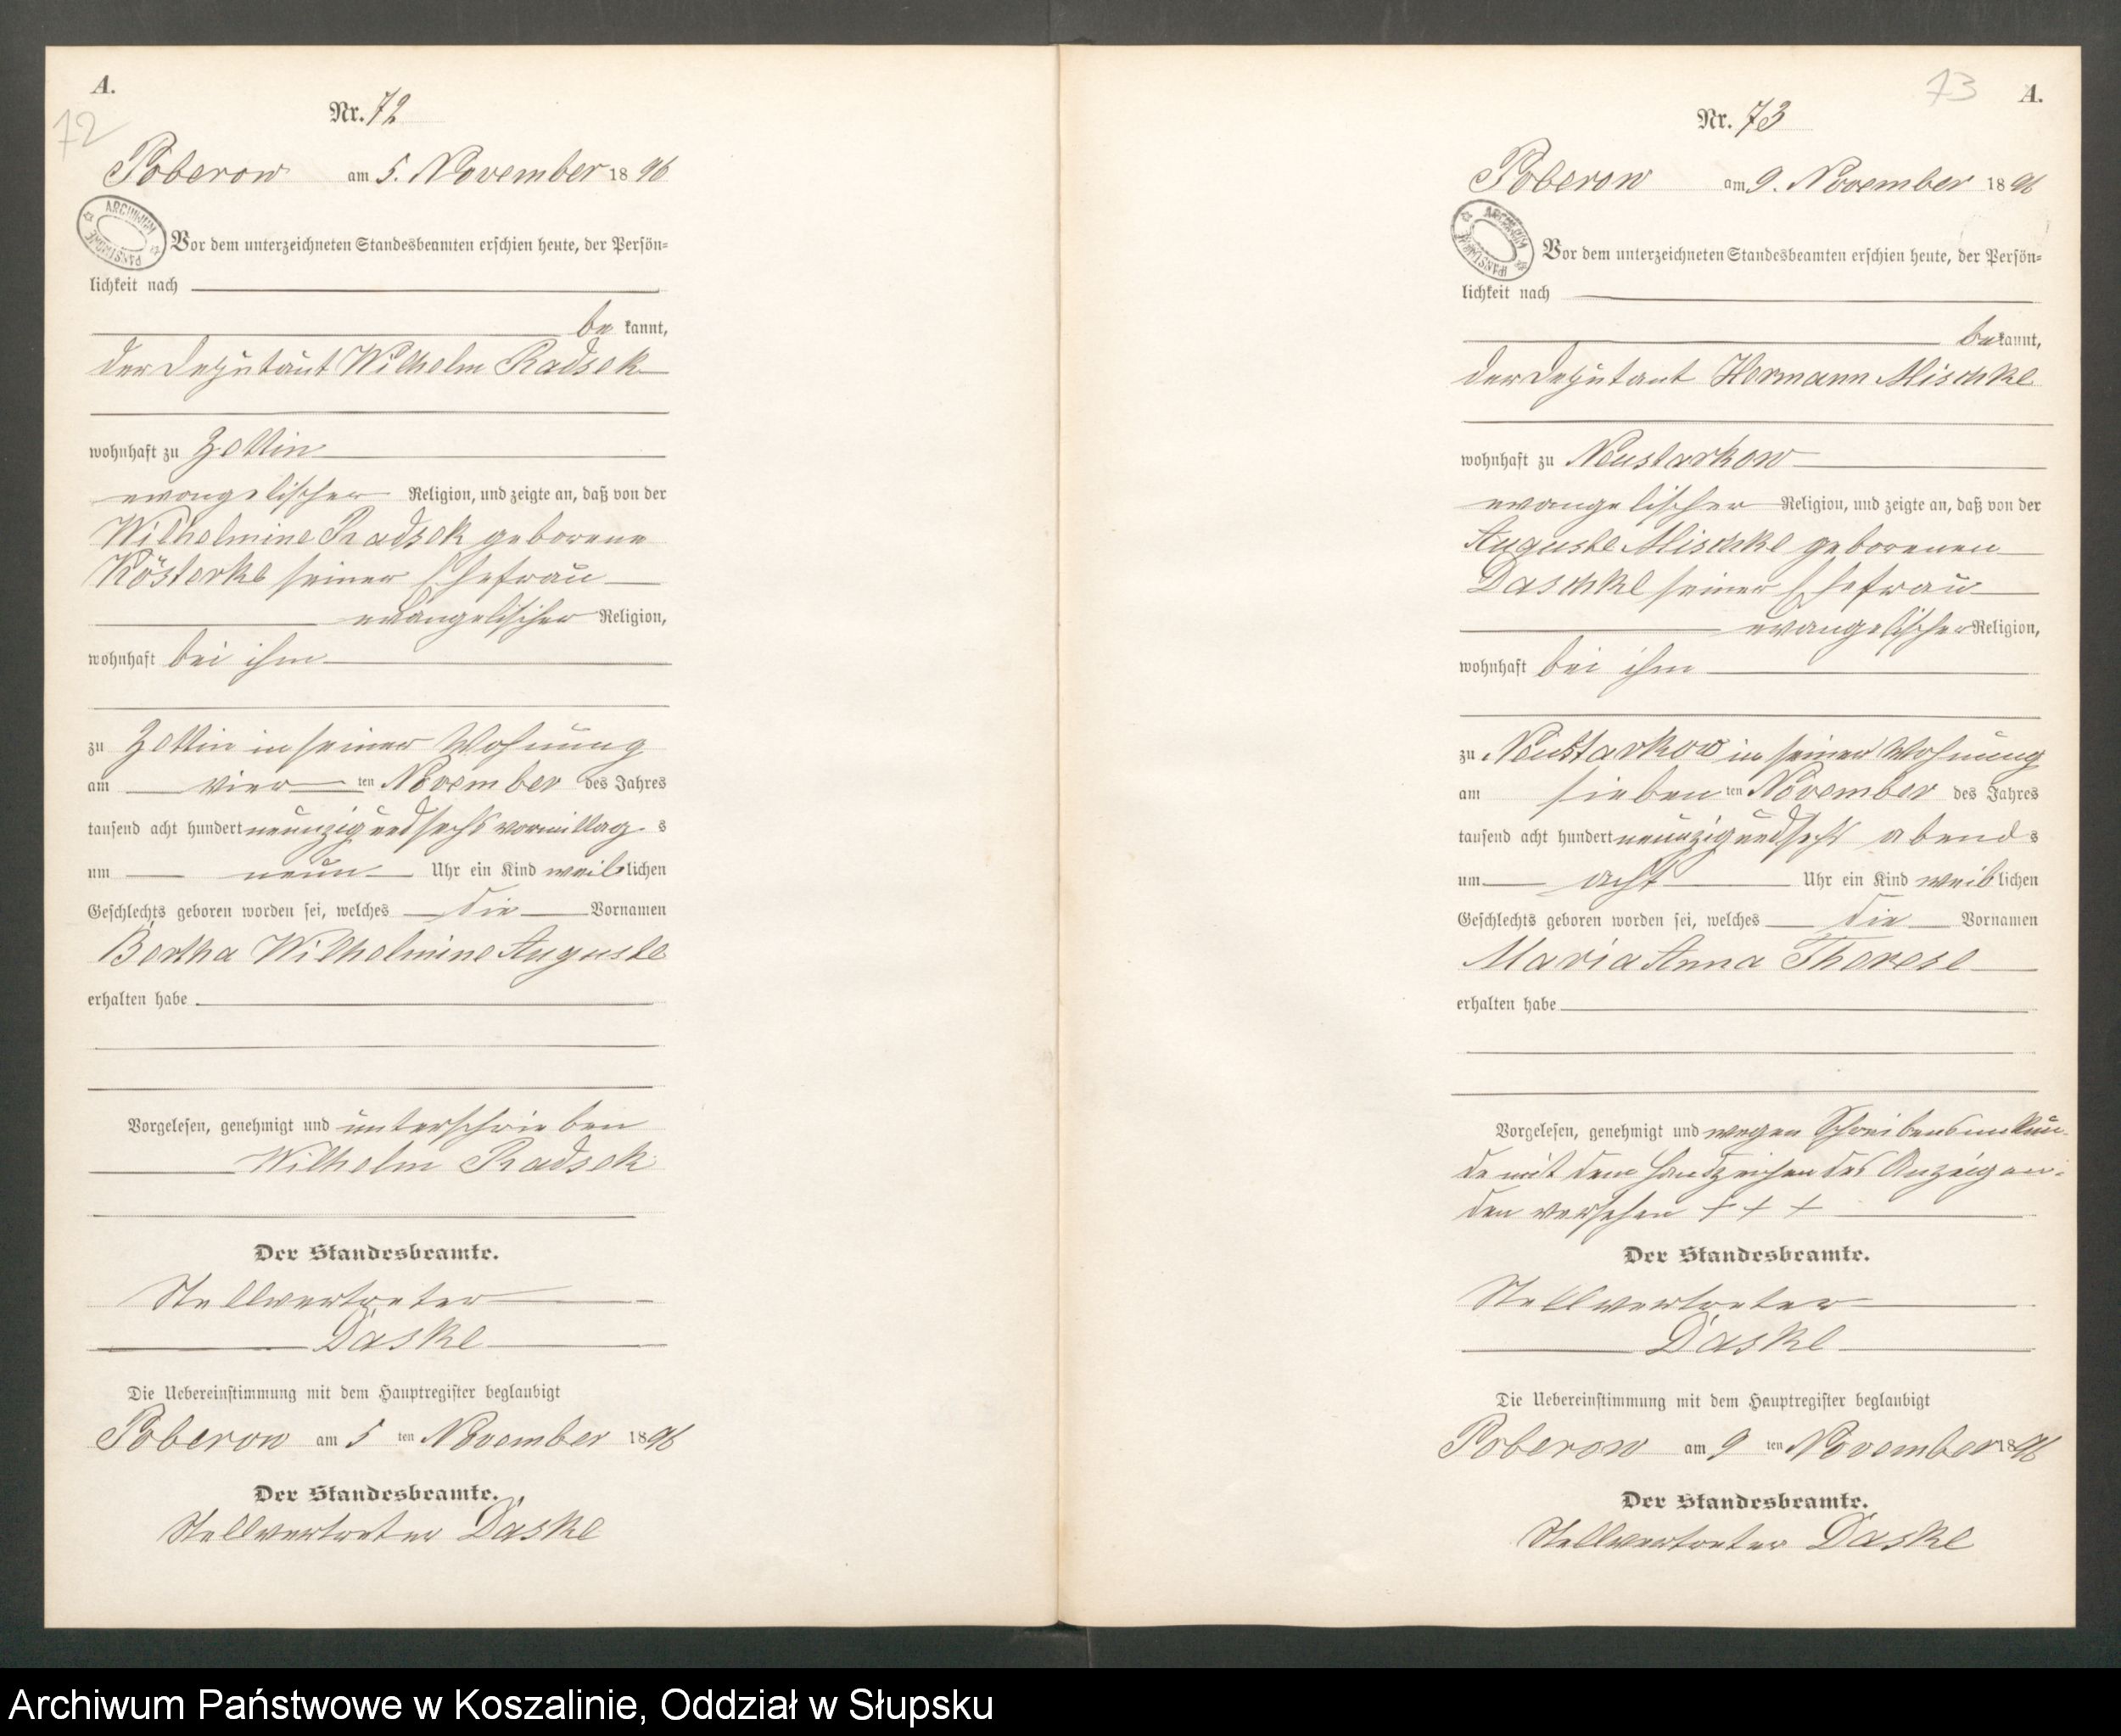 A.
72
Nr. 72
Poberow am 5. November 1896
ARCHIWUM PAŃSTWOWE
Vor dem unterzeichneten Standesbeamten erschien heute, der Persön=
lichkeit nach
be kannt,
der Deputant Wilhelm Radsek
wohnhaft zu Zettin
evangelischer Religion, und zeigte an, daß von der
Wilhelmine Radsek geborene
Kösterke seiner Ehefrau
evangelischer Religion,
wohnhaft bei ihm
zu Zettin in seiner Wohnung
am vier ten November des Jahres
tausend acht hundert neunzig und sechs vormittag s
um neun Uhr ein Kind weiblichen
Geschlechts geboren worden sei, welches die Vornamen
Bertha Wilhelmine Auguste
erhalten habe
Vorgelesen, genehmigt und unterschrieben
Wilhelm Radsek
Der Standesbeamte.
Stellvertreter
Daske
Die Uebereinstimmung mit dem Hauptregister beglaubigt
Poberow am 5 ten November 1896
Der Standesbeamte.
Stellvertreter Daske
73
A.
Nr. 73
Poberow am 9. November 1896
ARCHIWUM PAŃSTWOWE
Vor dem unterzeichneten Standesbeamten erschien heute, der Persön=
lichkeit nach
bekannt,
der Deputant Hermann Mischke
wohnhaft zu Neustarkow
evangelischer Religion, und zeigte an, daß von der
Auguste Mischke geborenen
Daschke seiner Ehefrau
evangelischer Religion,
wohnhaft bei ihm
zu Neustarkow in seiner Wohnung
am sieben ten November des Jahres
tausend acht hundert neunzig und sechs abend s
um acht Uhr ein Kind weiblichen
Geschlechts geboren worden sei, welches die Vornamen
Maria Anna Therese
erhalten habe
Vorgelesen, genehmigt und wegen Schreibensunkun-
de mit dem Handzeichen des Anzeigen-
den versehen + + +
Der Standesbeamte.
Stellvertreter
Daske
Die Uebereinstimmung mit dem Hauptregister beglaubigt
Poberow am 9 ten November 1896
Der Standesbeamte.
Stellvertreter Daske
Archiwum Państwowe w Koszalinie, Oddział w Słupsku